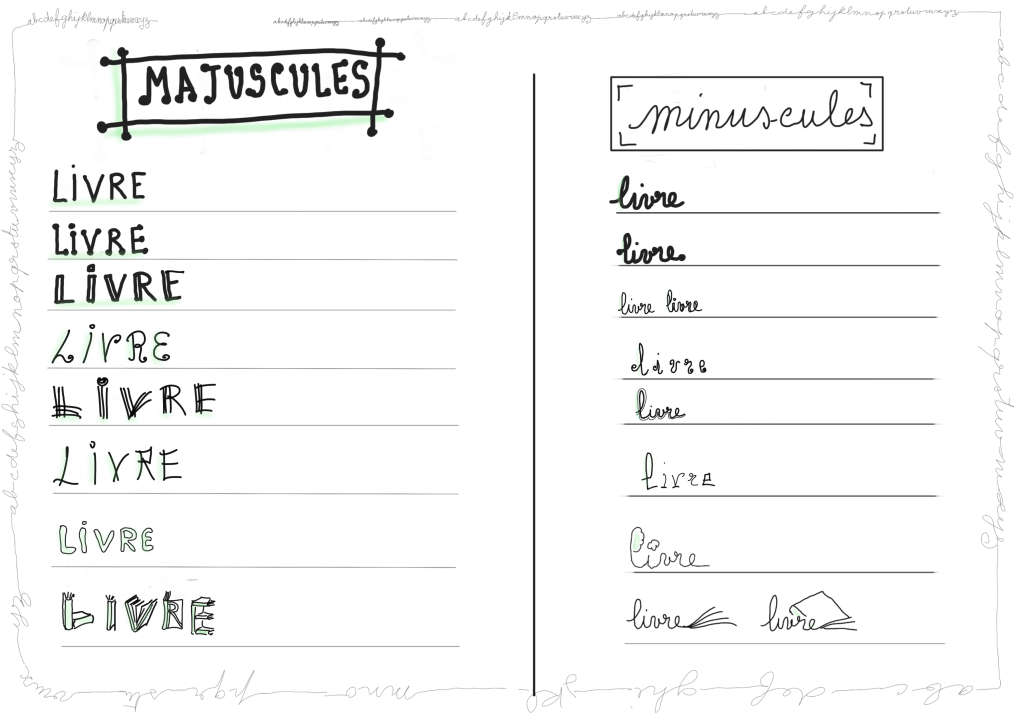 abcdefghijklmnopqrstuvwxyz abcdefghijklmnopqrstuvwxyz abcdefghijklmnopqrstuvwxyz abcdefghijklmnopqrstuvwxyz abcdefghijklmnopqrstuvwxyz abcdefghijklmnopqrstuvwxyz
MAJUSCULES
LiVRE
LiVRE
LiVRE
LiVRE
LiVRE
LiVRE
LiVRE
LIVRE
minuscules
livre
livre
livre livre
livre
livre
livre
livre
livre livre
abcdefghijklmnopqrstuvwxyz
abcdefghijklmnopqrstuvwxyz